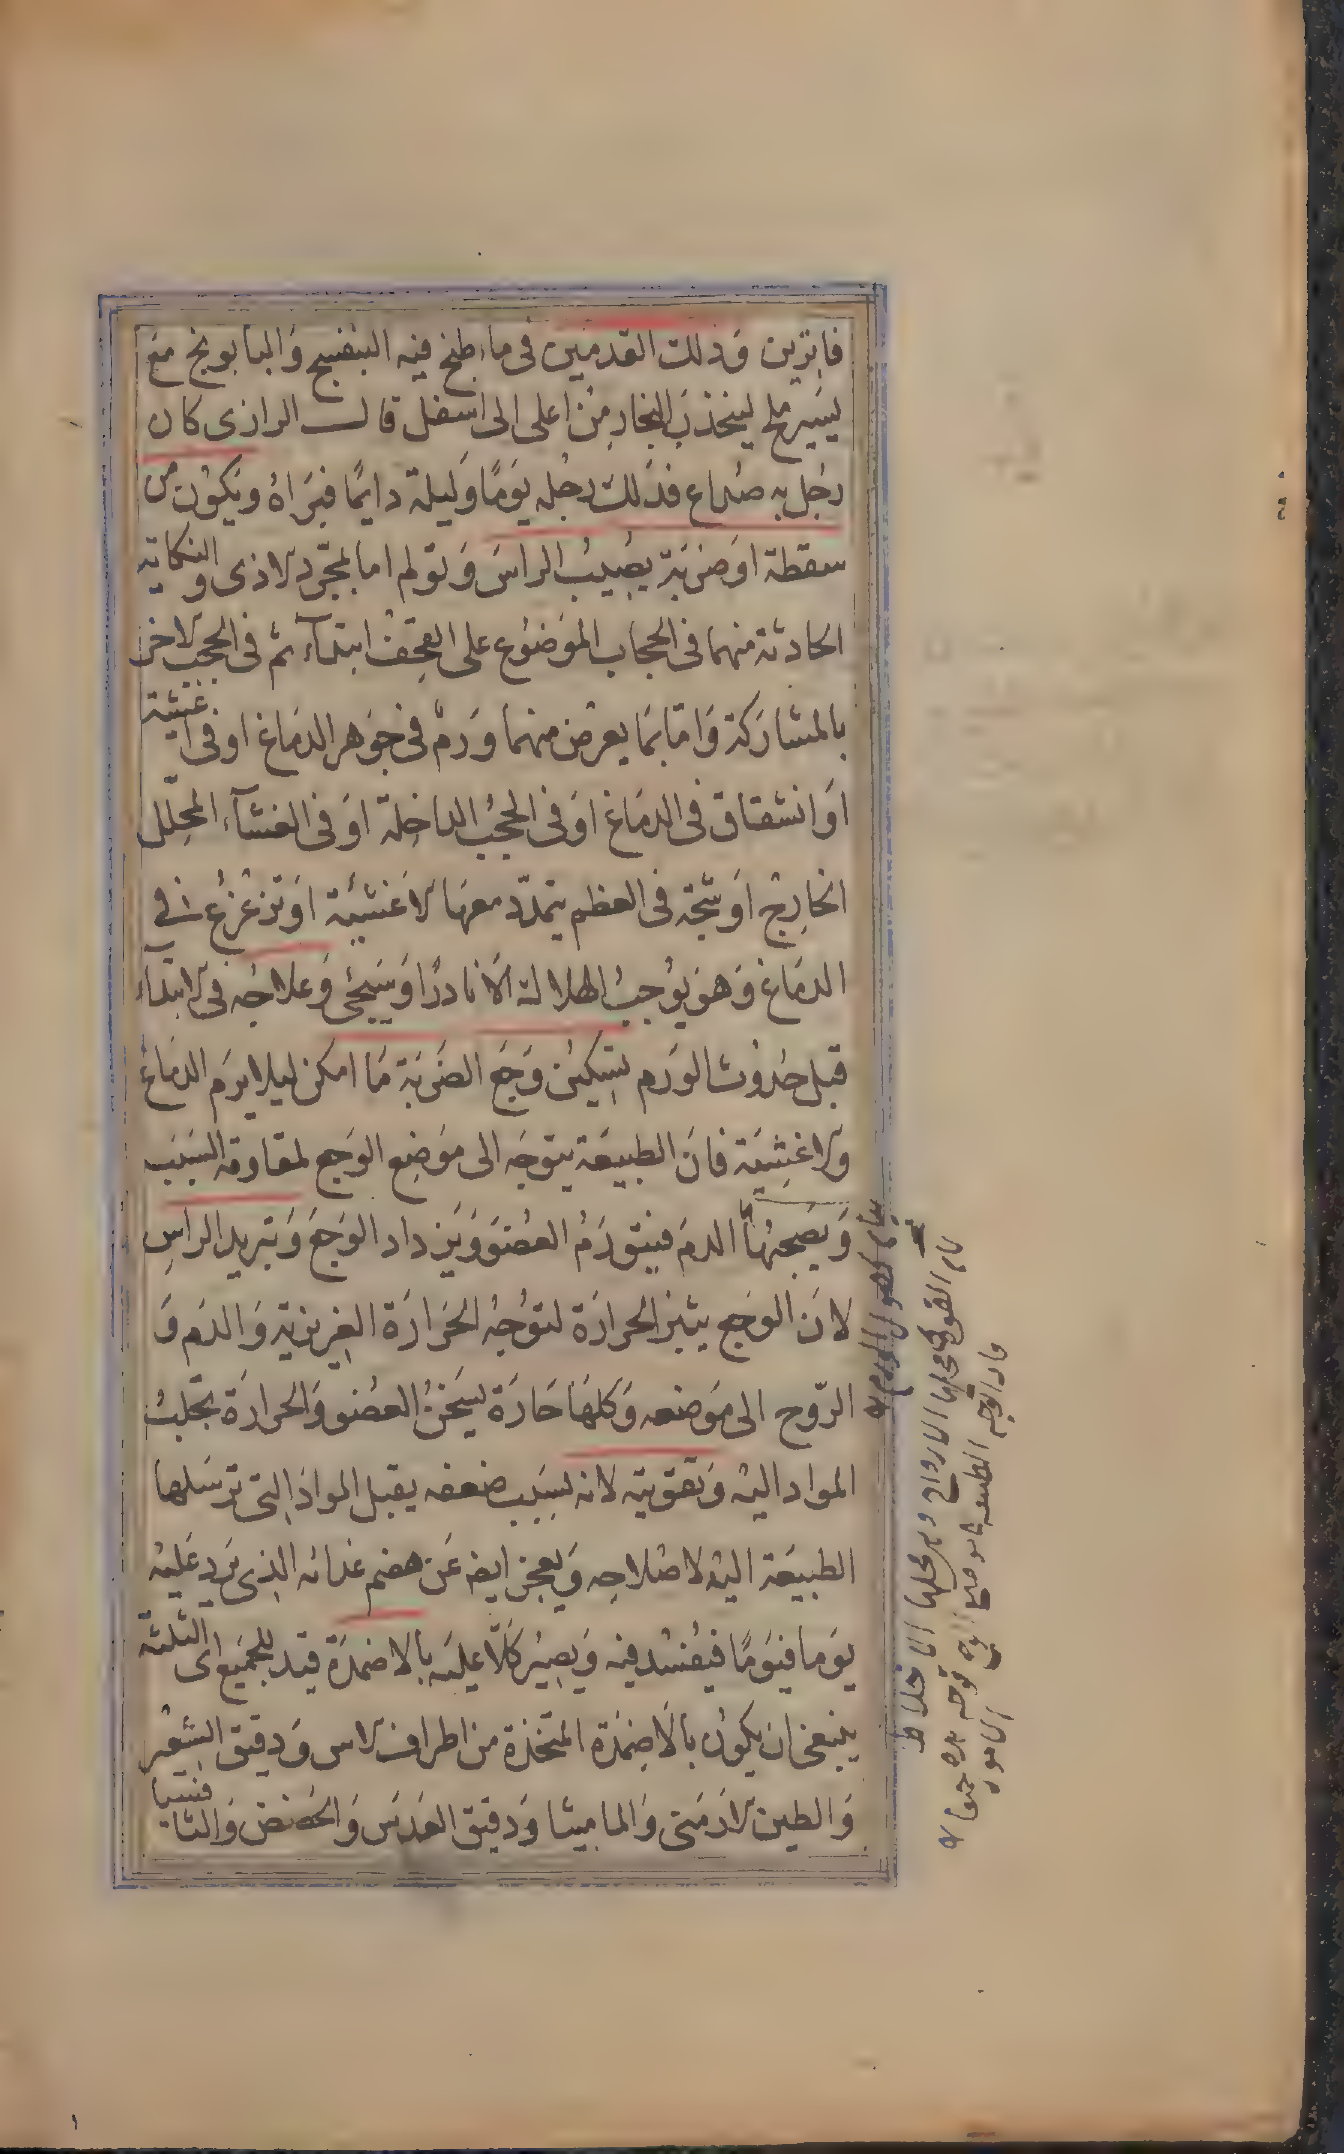 فابزين وَدلك القدمين فى ماء طبخ فيه البنفسج وَالبابونج مع
يسير ملح لينجذب البخار من اعلى الى اسفل قالـــ الرازى كان
رجل به صداع فدلك رجله يومًا وَليلة دايمًا فبراهُ ويكون من
سقطة او ضربة يصيب الراسَ وَتولم اما لمجرد الاذى والنكاية
الحادثة منهما فى الحجاب الموضوع على القحف ابتدآء ثم فى الحجب الاخر
بالمشاركة وَامّا بما يعرض منهما ورم فى جوهر الدماغ او فى اغشية
او انشقاق فى الدماغ او فى الحجب الداخلة او فى الغشآء المجلل
الخارج او شجة فى العظم يتمدّد معها الاغشية او تزعزع فى
الدماغ وَهو يوجب الهلا له الا نادرًا وَسيجئ وَعلاجه فى الابتدآء
قبل حدوث الورم بتسكين وَجع الضربة ما امكن ليلا يرم الدماغ
والاغشية فان الطبيعة يتوجه الى موضع الوجع لمقاومة السبب
وَيصحبها الدم فيتورم العضو وَيزداد الوجع وَتبريد الراس
لان الوجع يثير الحرارة لتوجه الحرارة الغريزية وَالدم وَ
الرّوح الى موضعه وَكلها حارة يسخن العضو وَالحرارة تجلب
المواد اليه وَتقويته لانه بسبب ضعفه يقبل المواد التى ترسلها
الطبيعة اليه لاصلاحه وَيعجز ايضا عن هضم غذائه الذى يرد عليه
يوما فيومًا فيفسد فيه وَيصير كلّا عليه بالاضمدة قيد للجميع اى الثلثة
ينبغى ان يكون بالاضمدة المتخذة من اطراف الاس وَدقيق الشعير
وَالطين الارمنى وَالماميثا وَدقيق العدس وَالحضض وَالتا
فسيا